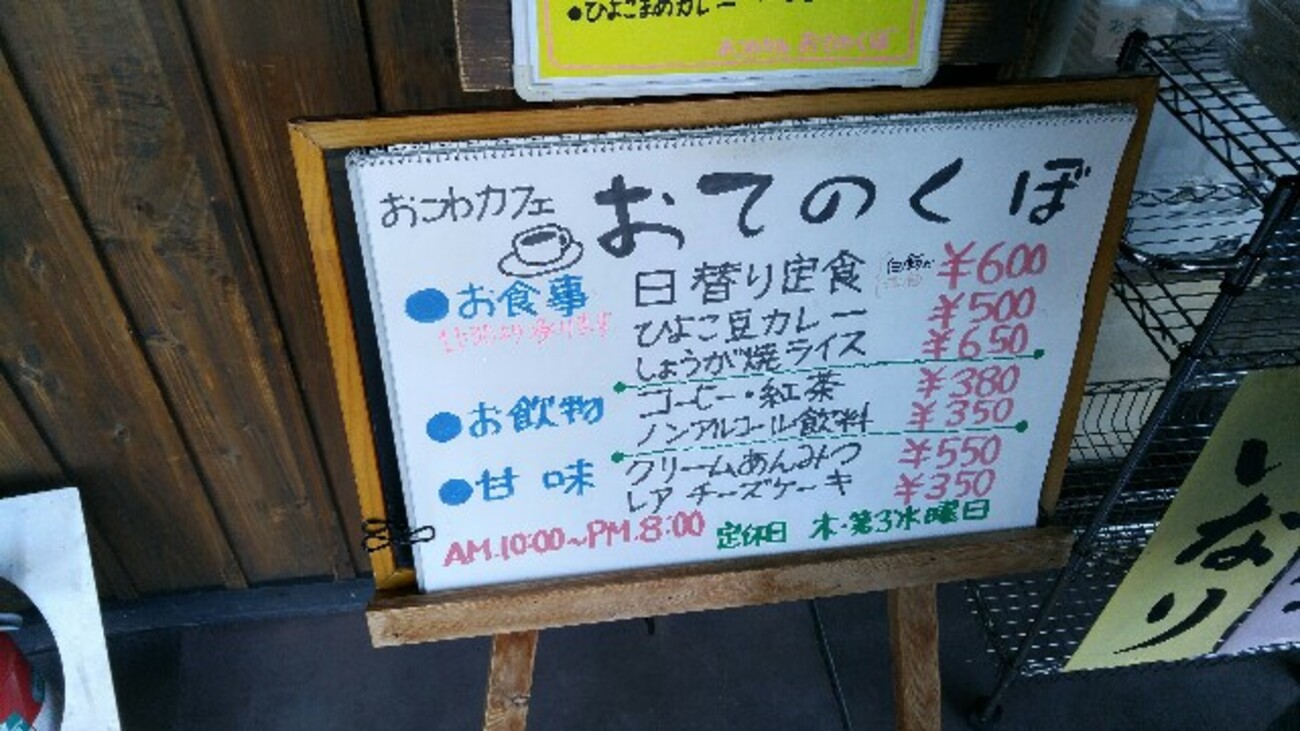 ●ひよこまめカレー
おこわカフェ
おてのくぼ
●お食事
日替り定食 ¥600
ひよこ豆カレー ¥500
しょうが焼ライス ¥650
●お飲物
コーヒー・紅茶 ¥380
ノンアルコール飲料 ¥350
●甘味
クリームあんみつ ¥550
レアチーズケーキ ¥350
AM.10:00~PM.8:00 定休日 木・第3水曜日
いなり